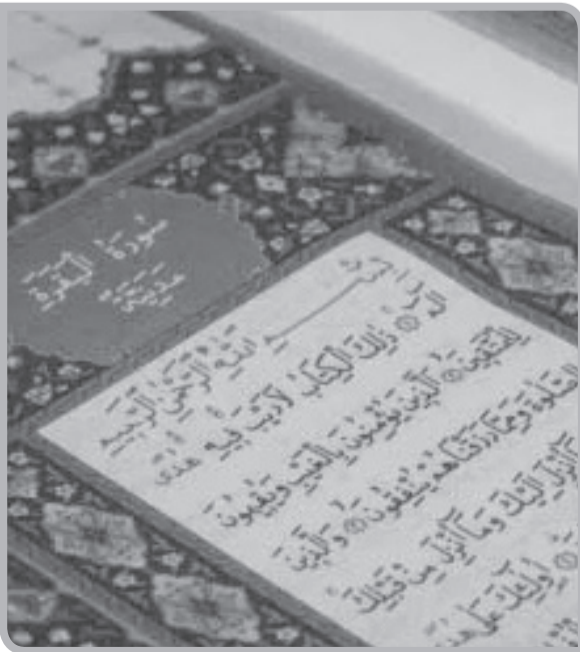 سُورَةُ الْبَقَرَةِ
مَدَنِيَّة
بِسْمِ اللهِ الرَّحْمٰنِ الرَّحِيمِ
الٓمٓ ۝ ذٰلِكَ الْكِتَابُ لَا رَيْبَ فِيهِ هُدًى
لِلْمُتَّقِينَ ۝ الَّذِينَ يُؤْمِنُونَ بِالْغَيْبِ وَيُقِيمُونَ
الصَّلٰوةَ وَمِمَّا رَزَقْنَاهُمْ يُنْفِقُونَ ۝ وَالَّذِينَ
أُنْزِلَ إِلَيْكَ وَمَا أُنْزِلَ مِنْ قَبْلِكَ
أُولٰئِكَ عَلٰى هُدًى